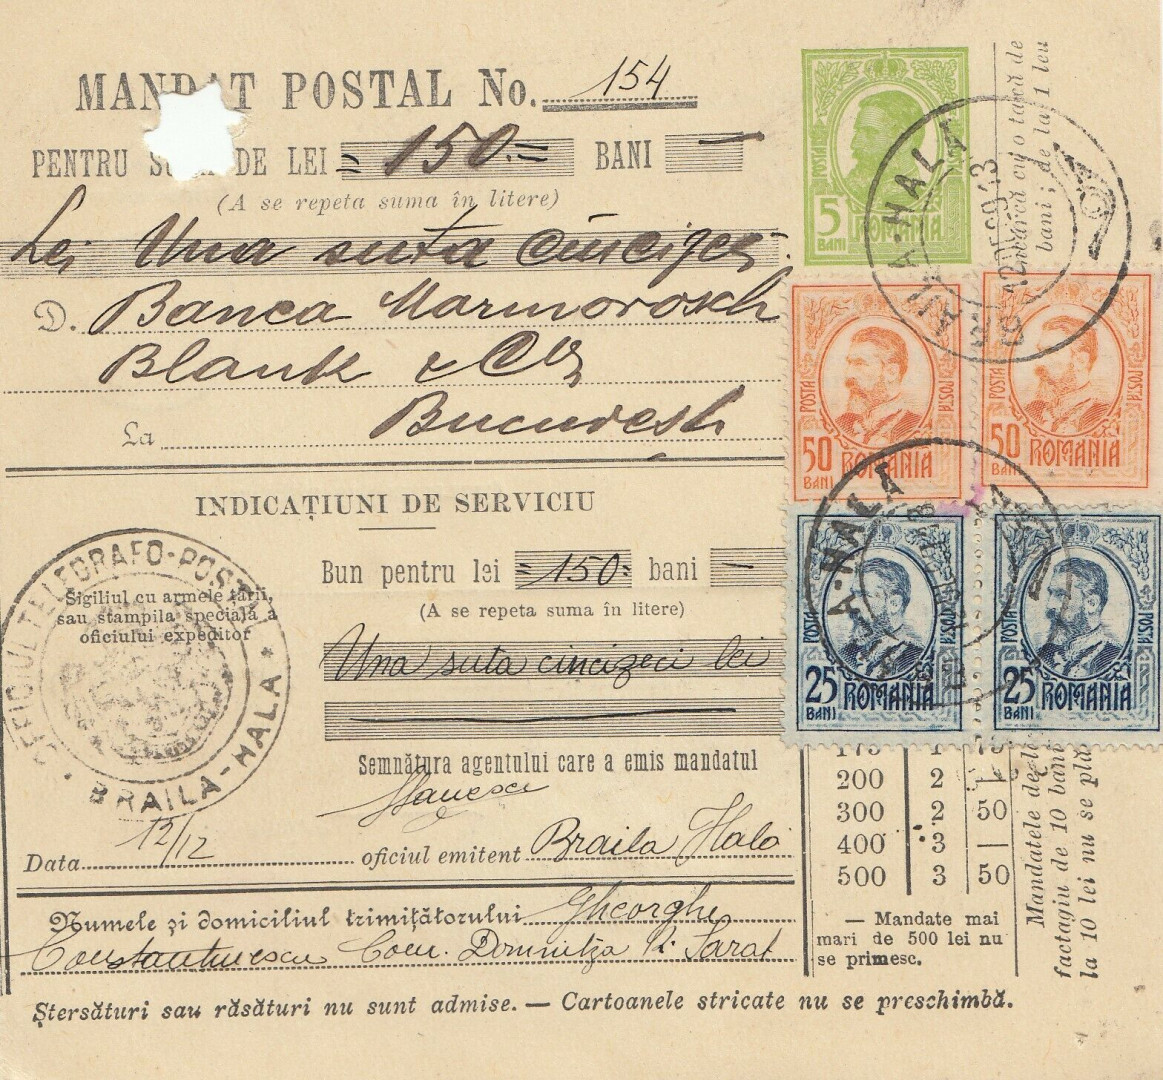 MANDAT POSTAL No. 154
PENTRU SUMA DE LEI = 150 = BANI —
(A se repeta suma în litere)
Lei Una suta cincizeci
D. Banca Marmorosch
Blank & Cie
La Bucuresti
INDICAȚIUNI DE SERVICIU
Bun pentru lei = 150 = bani —
(A se repeta suma în litere)
Una suta cincizeci lei
Sigiliul cu armele țării,
sau stampila specială a
oficiului expeditor
OFICIUL TELEGRAFO-POSTAL
* BRAILA-HALA *
Semnătura agentului care a emis mandatul
Data 12/12 oficiul emitent Braila Hala
Numele și domiciliul trimițătorului Gheorghe
Constantinescu Com. Domnitza R. Sarat
Ștersături sau răsături nu sunt admise. — Cartoanele stricate nu se preschimbă.
POSTA
5 BANI ROMANIA
BRAILA-HALA
POSTA POSTA
50 BANI ROMANIA
POSTA POSTA
50 BANI ROMANIA
BRAILA-HALA
POSTA POSTA
25 BANI ROMANIA
POSTA POSTA
25 BANI ROMANIA
175 1 75
200 2 —
300 2 50
400 3 —
500 3 50
— Mandate mai
mari de 500 lei nu
se primesc.
încarcă cu o taxă de
bani; de la 1 leu
Mandatele de
factagiu de 10 bani
la 10 lei nu se